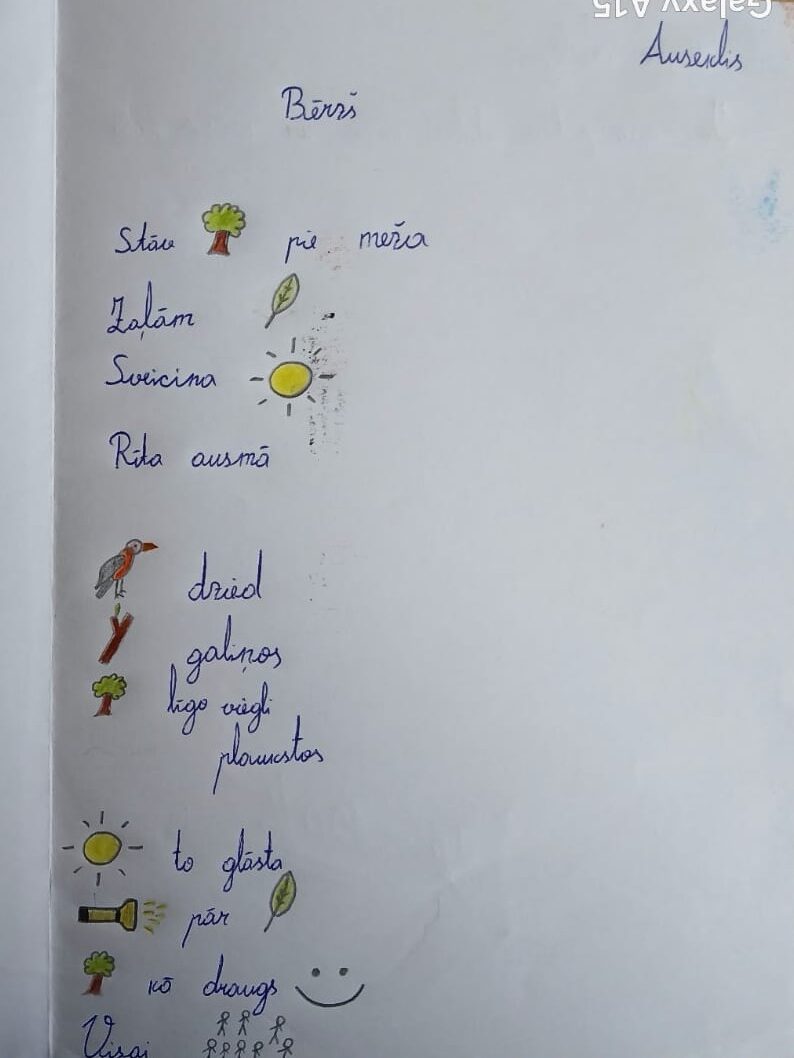 Galaxy A15
Auseklis
Bērzs
Stāv pie meža
Zaļām
Sveicina
Rīta ausmā
dzied
galiņos
līgo viegli
plaukstas
to glāsta
pār
kā draugs
Visai